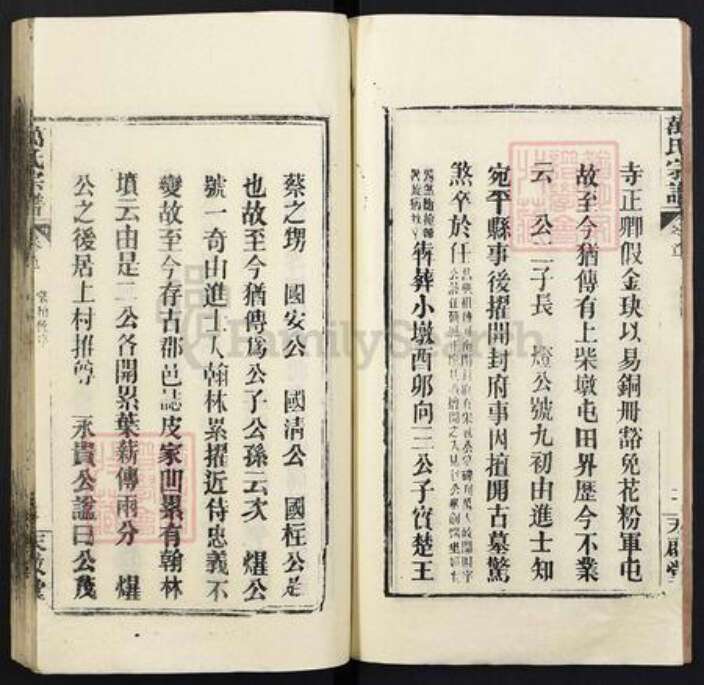 萬氏宗譜
寺正卿假金玦以易銅冊豁免花粉軍屯
故至今猶傳有上柴墩屯田界歷今不業
云 公二子長 燈公號九初由進士知
宛平縣事後擢開封府事因擅開古墓驚
煞卒於任
犇葬小墩酉卯向三公子實楚王
蔡之甥 國安公 國清公 國柱公是
也故至今猶傳爲公子公孫云次 熤公
號一奇由進士入翰林累擢近侍忠義不
變故至今存古郡邑誌皮家凹累有翰林
墳云由是二公各開累葉薪傳兩分 熤
公之後居上村推尊 永貴公諡曰公茂
萬氏宗譜
FamilySearch